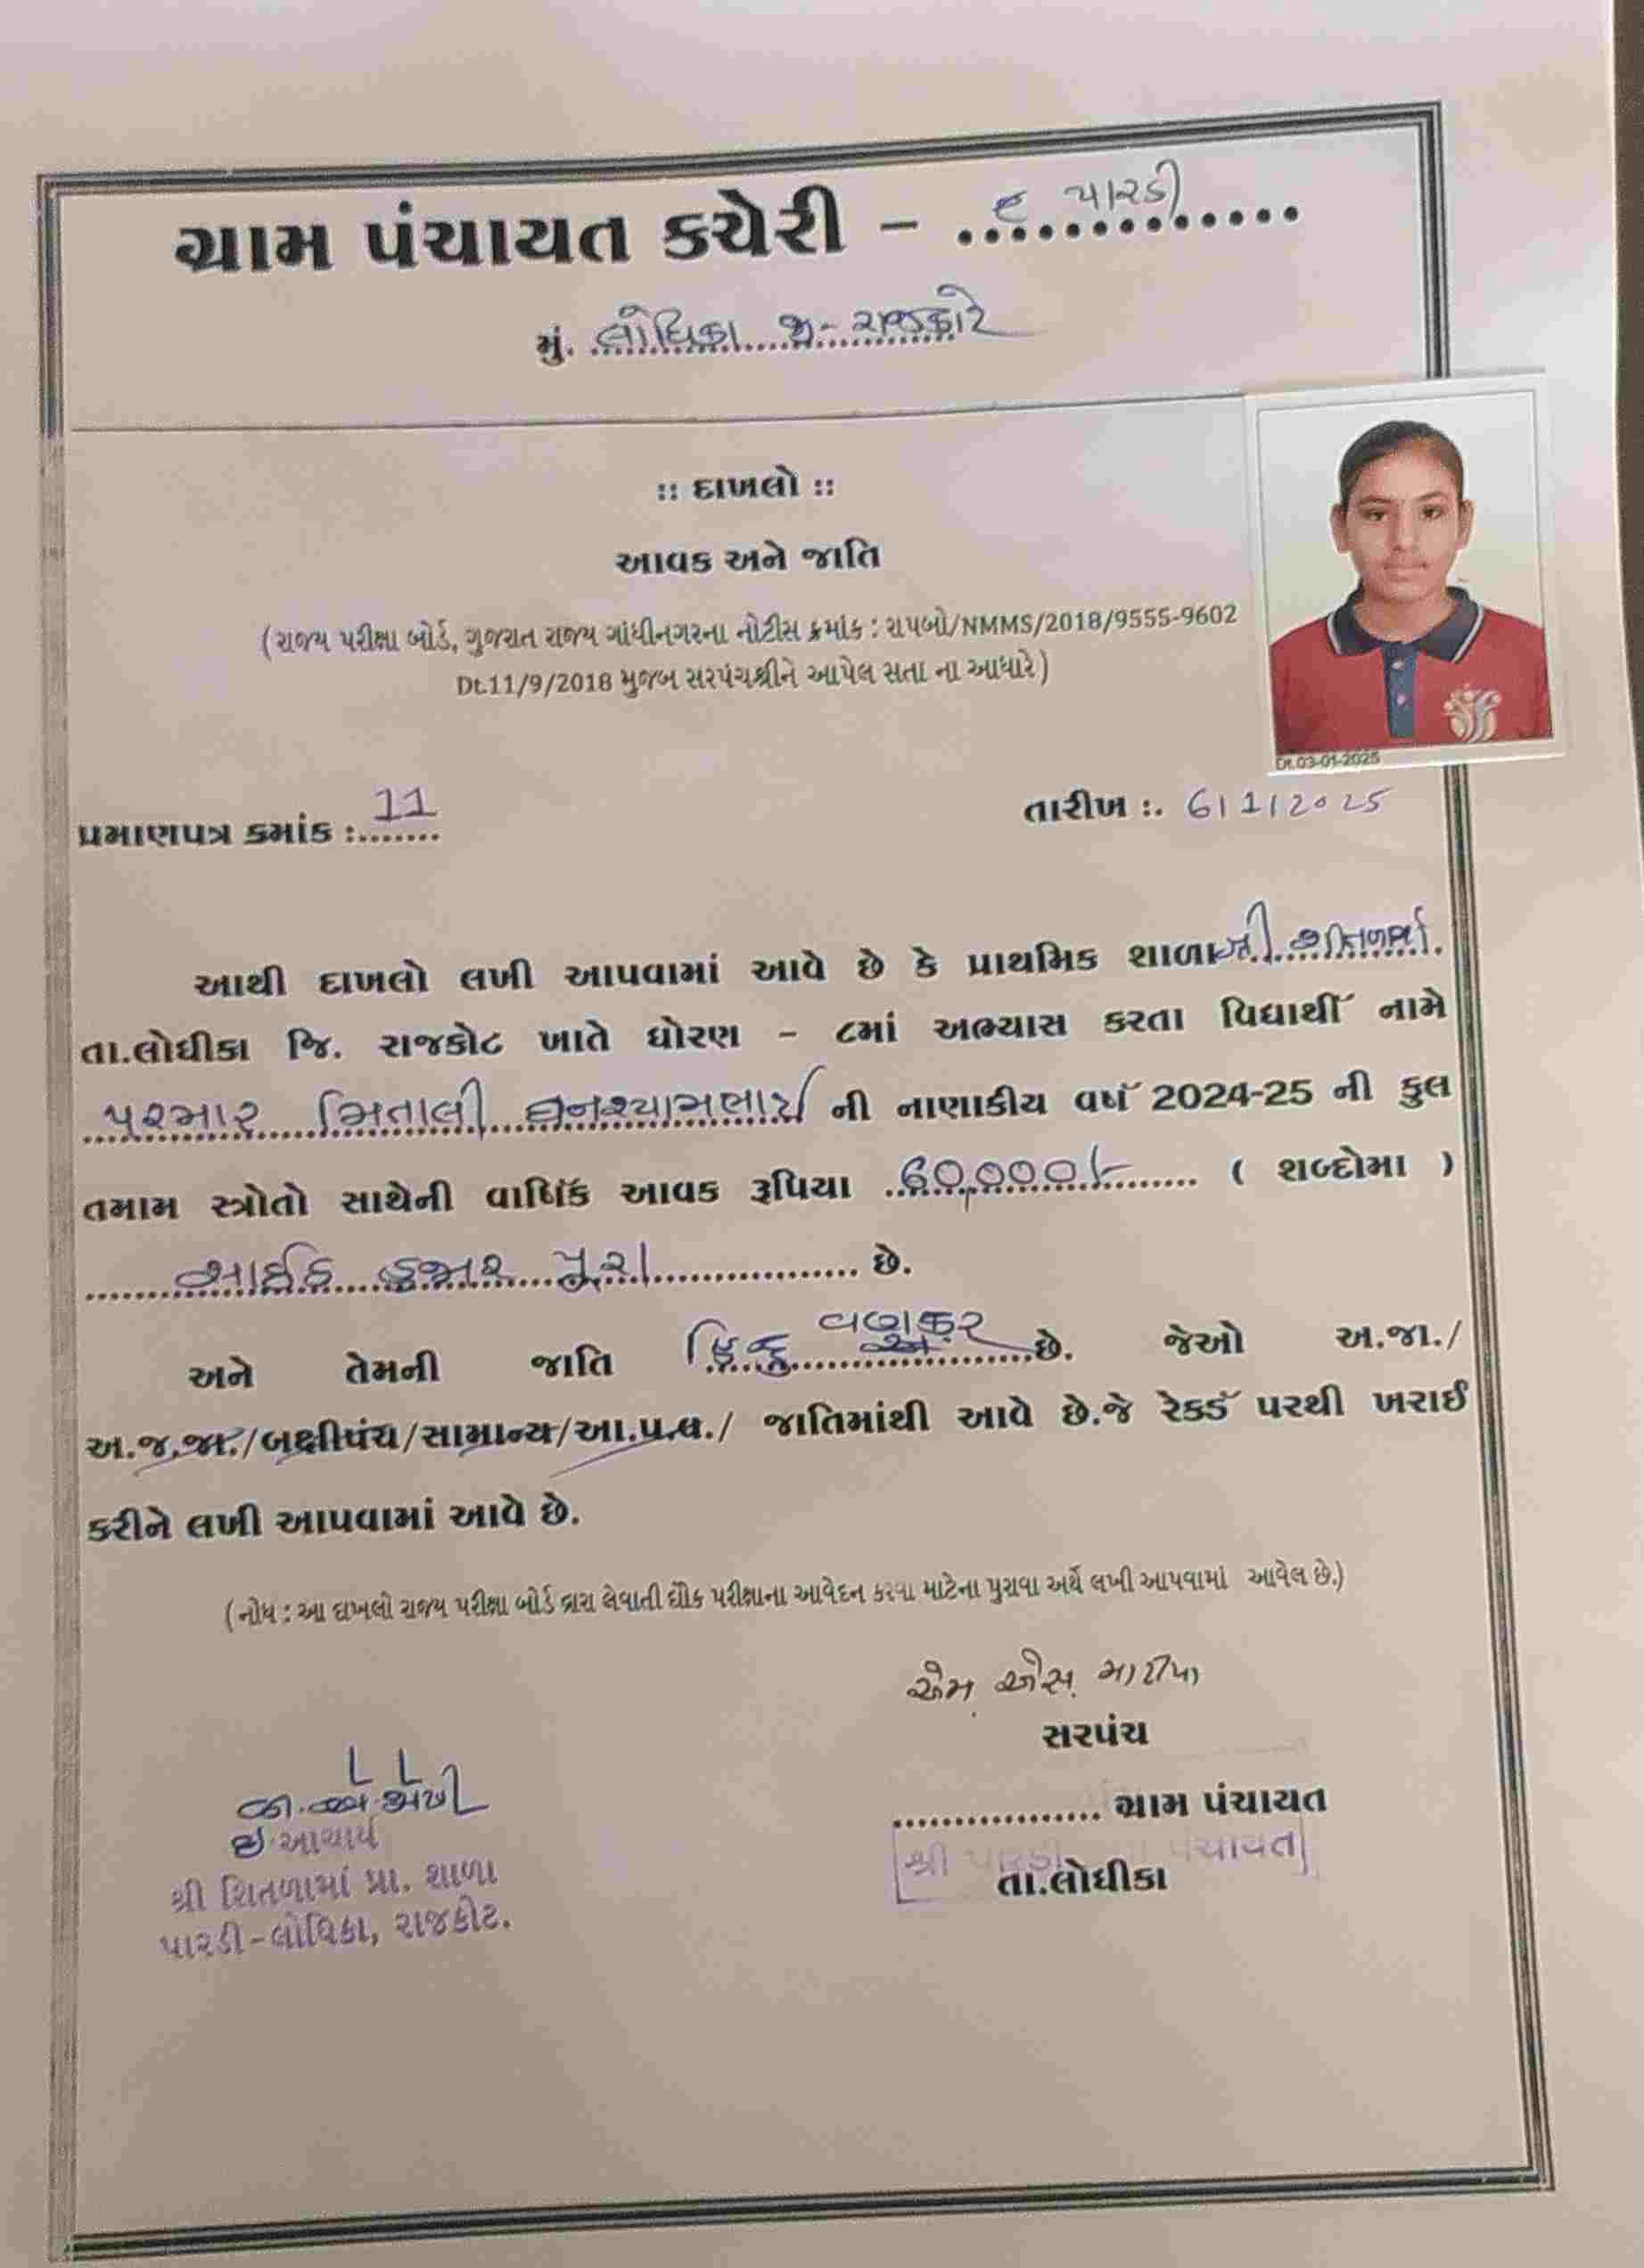 ગ્રામ પંચાયત કચેરી – ............ પારડી
મું. લોધિકા જી- રાજકોટ
:: દાખલો ::
આવક અને જાતિ
(રાજ્ય પરીક્ષા બોર્ડ, ગુજરાત રાજ્ય ગાંધીનગરના નોટીસ ક્રમાંક : રાપબો/NMMS/2018/9555-9602
Dt.11/9/2018 મુજબ સરપંચશ્રીને આપેલ સતા ના આધારે)
Dt.03-01-2025
પ્રમાણપત્ર ક્રમાંક :....... 11
તારીખ :. 6/1/2025
આથી દાખલો લખી આપવામાં આવે છે કે પ્રાથમિક શાળા
તા.લોધીકા જિ. રાજકોટ ખાતે ધોરણ – ૮માં અભ્યાસ કરતા વિદ્યાર્થી નામે
પરમાર મિતાલી ઘનશ્યામભાઈ ની નાણાકીય વર્ષ 2024-25 ની કુલ
તમામ સ્ત્રોતો સાથેની વાર્ષિક આવક રૂપિયા 60,000/- ( શબ્દોમા )
સાઈઠ હજાર પુરા છે.
અને તેમની જાતિ હિન્દુ વણકર છે. જેઓ અ.જા./
અ.જ.જા./બક્ષીપંચ/સામાન્ય/આ.પ.વ./ જાતિમાંથી આવે છે.જે રેકર્ડ પરથી ખરાઈ
કરીને લખી આપવામાં આવે છે.
(નોંધ : આ દાખલો રાજ્ય પરીક્ષા બોર્ડ દ્વારા લેવાતી ઘોંક પરીક્ષાના આવેદન કરવા માટેના પુરાવા અર્થે લખી આપવામાં આવેલ છે.)
એમ એસ મારીયા
સરપંચ
................ ગ્રામ પંચાયત
શ્રી પારડી ગ્રામ પંચાયત
તા.લોધીકા
ઈ.આચાર્ય
શ્રી શિતળામાં પ્રા. શાળા
પારડી-લોધિકા, રાજકોટ.